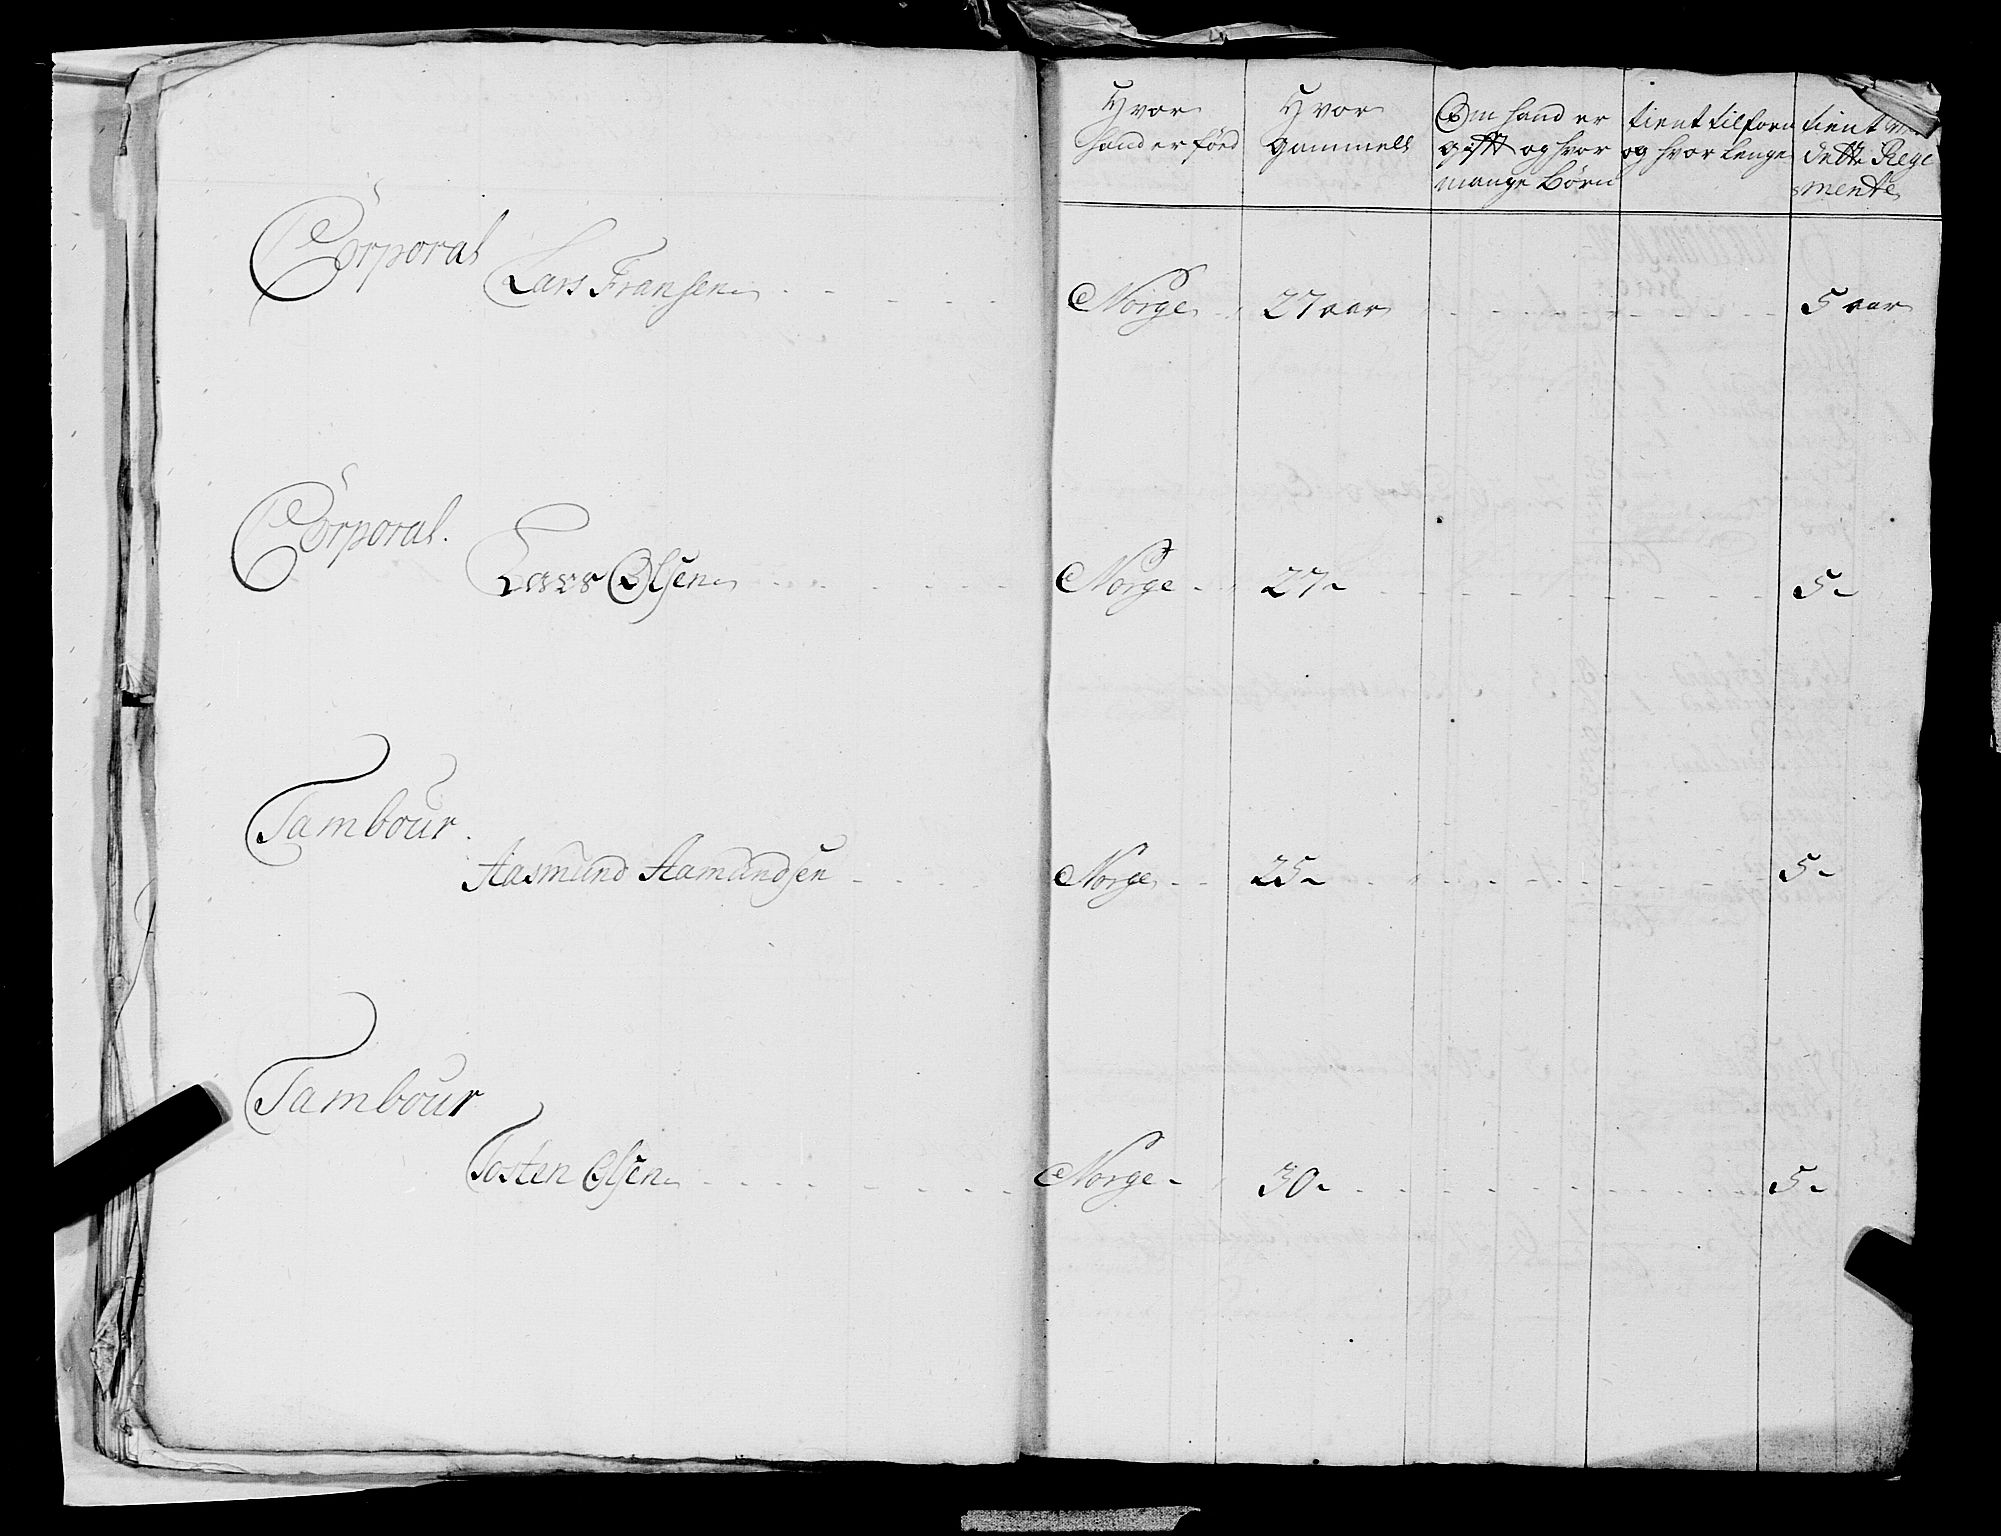 Hvor
hand er föed
Hvor
gammell
Om hand er
gifft og hvor
mange Börn
tient tilforn
og hvor lenge
tient
dette Rege
mente
Corporal
Lars Fransen
Norge
27 aar
5 aar
Corporal.
Lars Olsen
Norge
27
5
Tambour.
Aasmund Aamundsen
Norge
25
5
Tambour
Tosten Olsen
Norge
30
5